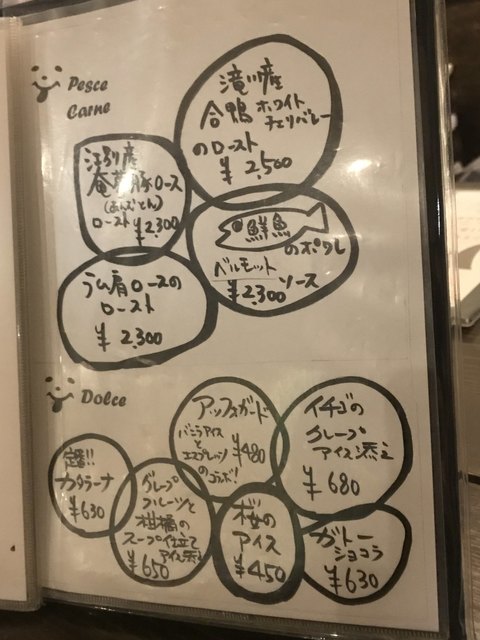 Pesce
Carne
滝川産
合鴨 ホワイト
チェリバレー
のロースト
¥ 2,500
江別産
庵豚ロース
(あんとん)
ロースト ¥2,300
鮮魚
のポワレ
ベルモット
ソース
¥2,300
ラム肩ロースの
ロースト
¥ 2,300
Dolce
アッフォガード
バニラアイス
と
エスプレッソ
のコラボ!
¥480
イチゴの
クレープ
アイス添え
¥680
定番!!
カタラーナ
¥630
グレープ
フルーツと
柑橘の
スープ仕立て
アイス添え
¥650
桜の
アイス
¥450
ガトー
ショコラ
¥630